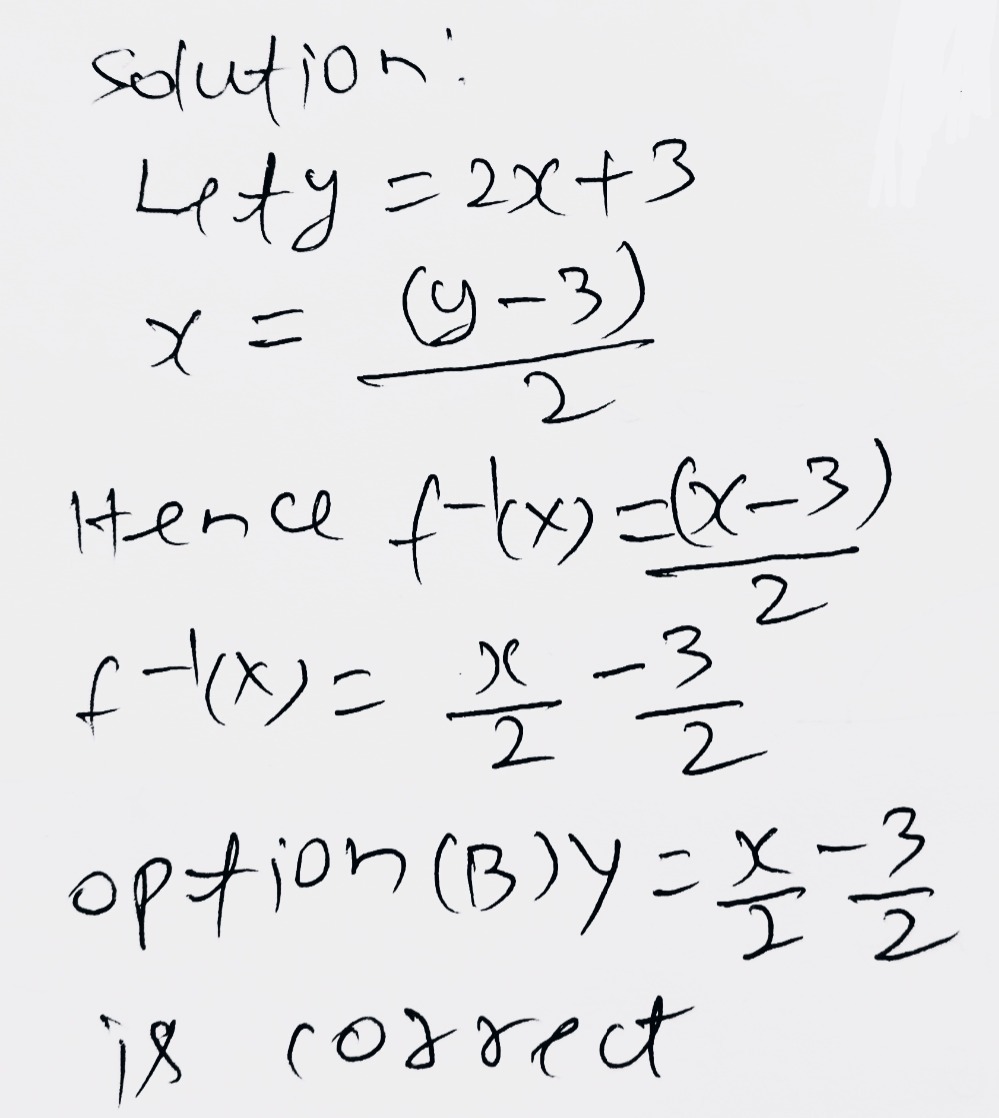 Solution:
Let y = 2x+3
x = (y-3)/2
Hence f⁻¹(x) = (x-3)/2
f⁻¹(x) = x/2 - 3/2
option (B) y = x/2 - 3/2
is correct